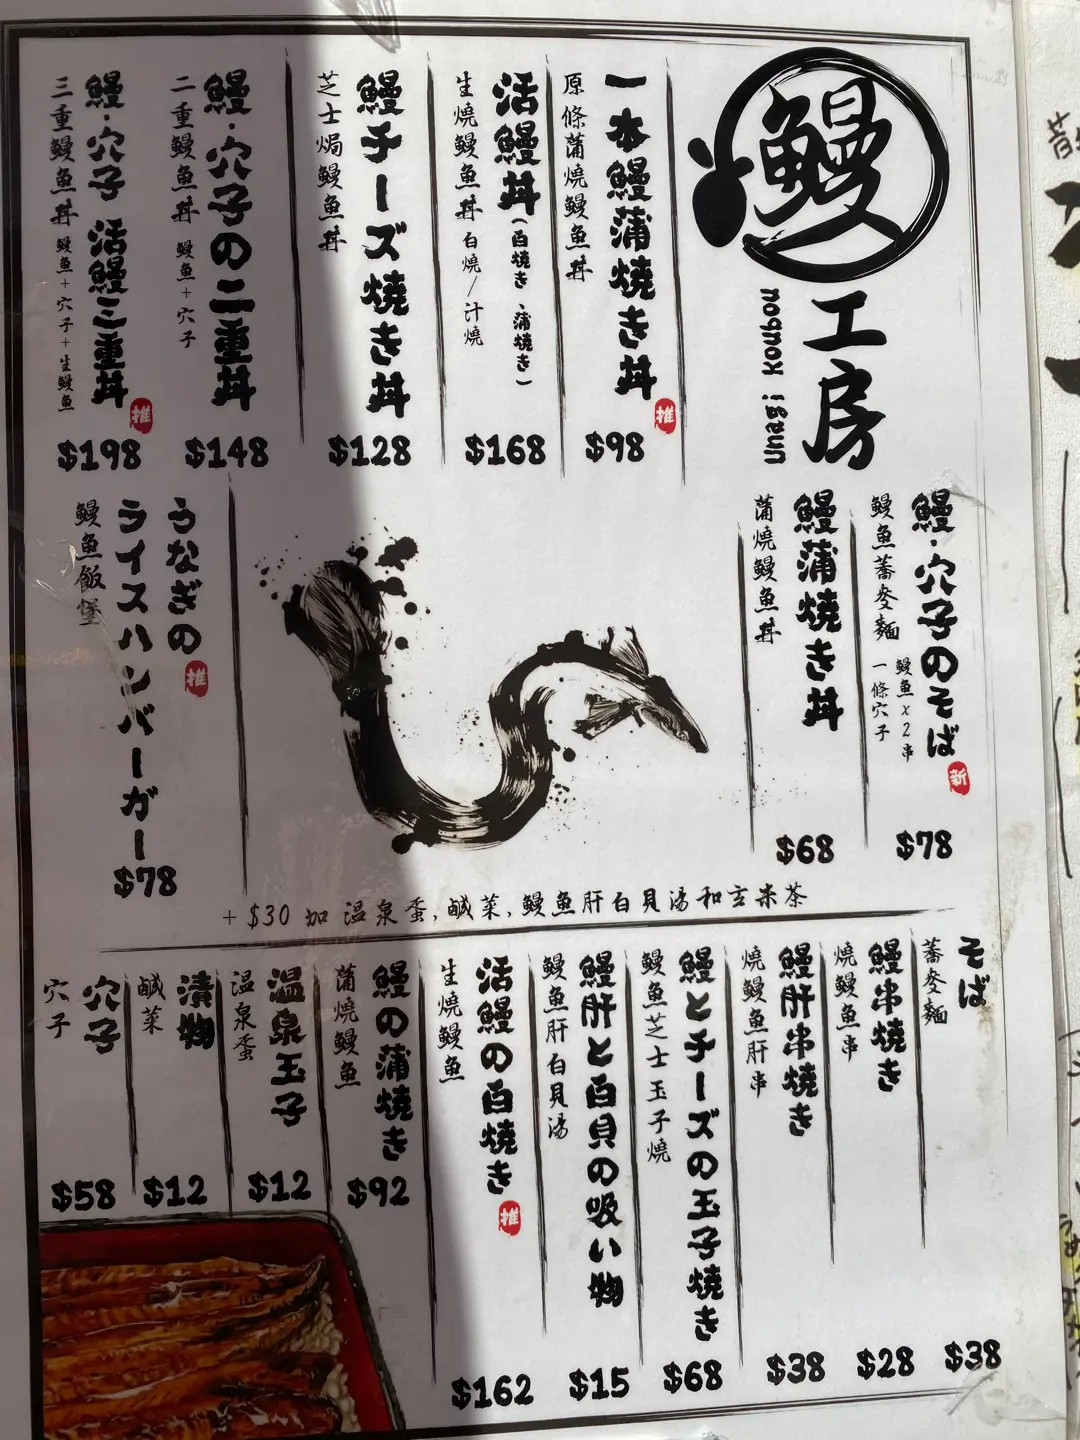 鰻
工房
unagi koubou
一本鰻蒲焼き丼
原條蒲燒鰻魚丼
推
$98
活鰻丼(白焼き 蒲焼き)
生燒鰻魚丼 白燒/汁燒
$168
鰻チーズ焼き丼
芝士焗鰻魚丼
$128
鰻·穴子の二重丼
二重鰻魚丼 鰻魚+穴子
$148
鰻·穴子 活鰻三重丼
三重鰻魚丼 鰻魚+穴子+生鰻魚
推
$198
鰻·穴子のそば
鰻魚蕎麥麵 鰻魚x2串
一條穴子
新
$78
鰻蒲焼き丼
蒲燒鰻魚丼
$68
うなぎの
ライスハンバーガー
鰻魚飯堡
推
$78
+$30 加 温泉蛋,鹹菜,鰻魚肝白貝湯和玄米茶
そば
蕎麥麵
$38
鰻串焼き
燒鰻魚串
$28
鰻肝串焼き
燒鰻魚肝串
$38
鰻とチーズの玉子焼き
鰻魚芝士玉子燒
$68
鰻肝と白貝の吸い物
鰻魚肝白貝湯
$15
活鰻の白焼き
生燒鰻魚
推
$162
鰻の蒲焼き
蒲燒鰻魚
$92
温泉玉子
温泉蛋
$12
漬物
鹹菜
$12
穴子
穴子
$58